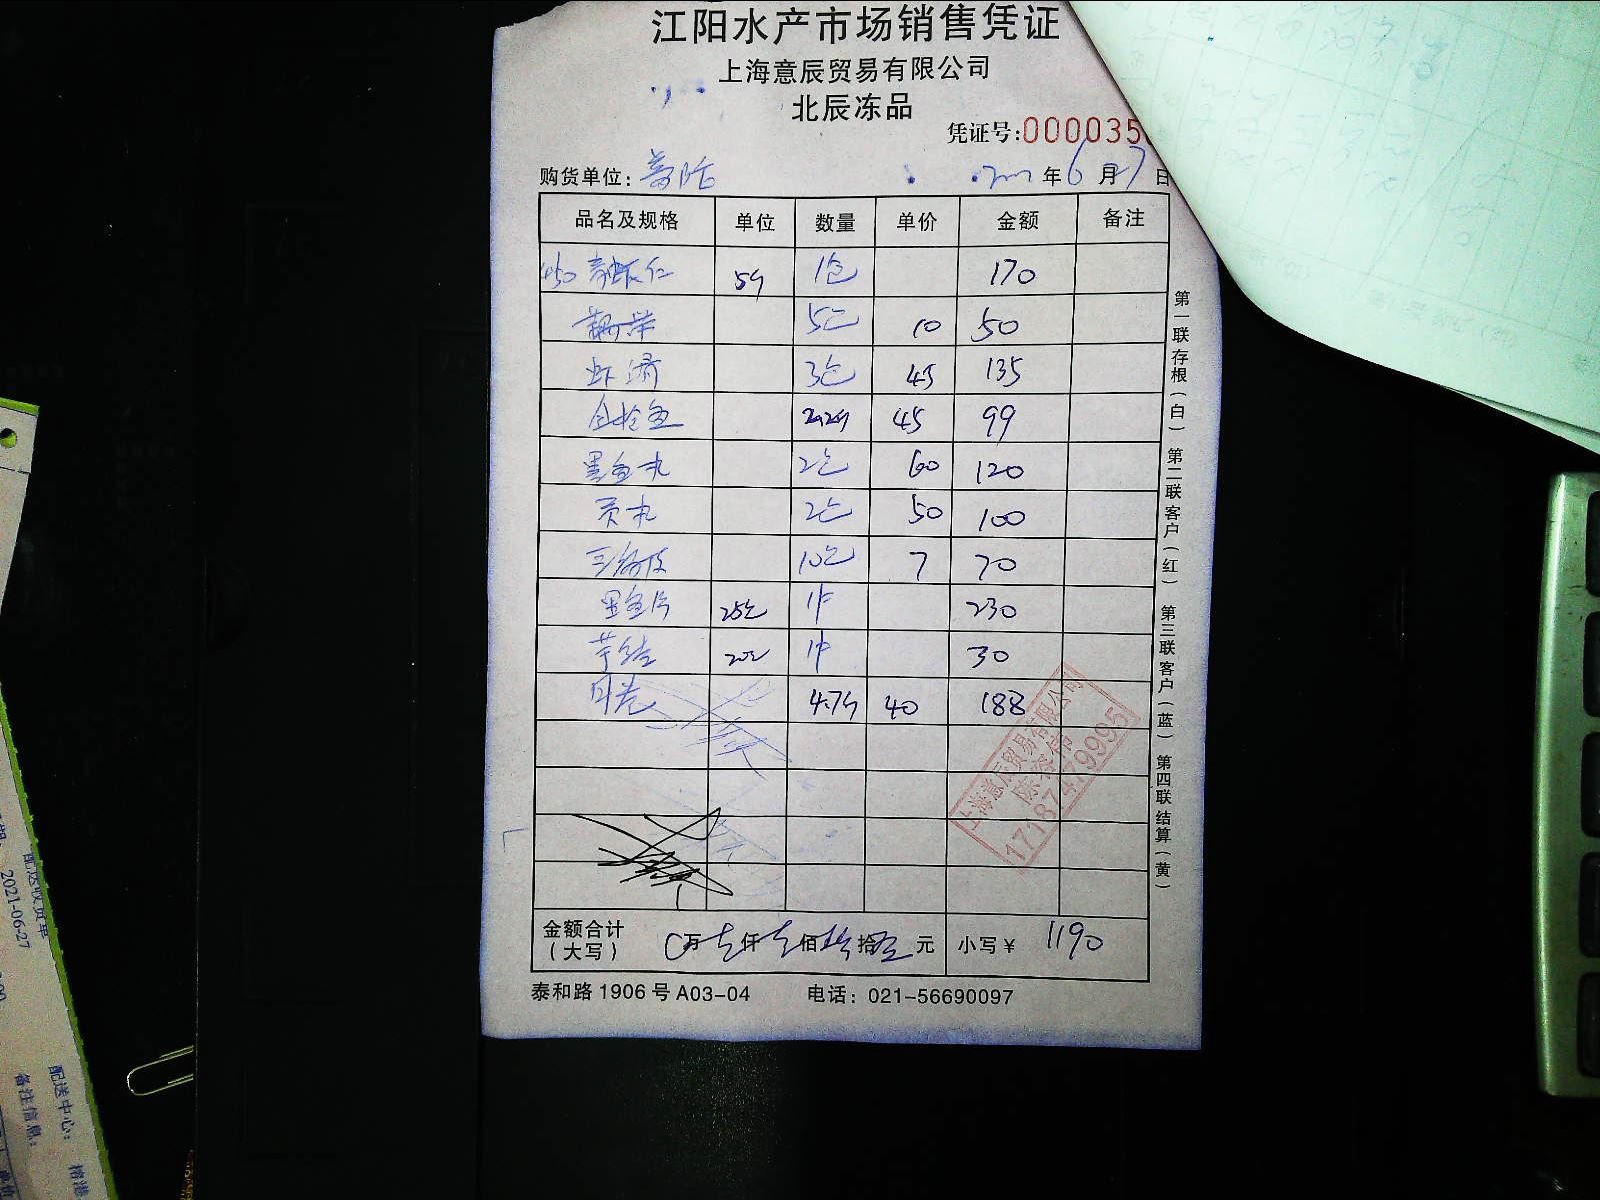 江阳水产市场销售凭证
上海意辰贸易有限公司
北辰冻品
凭证号:000035
购货单位: 年 6 月 7 日
品名及规格 单位 数量 单价 金额 备注
450 青虾仁 5斤 1包 170
5包 10 50
虾滑 3包 45 135
2.2斤 45 99
黑鱼丸 2包 60 120
贡丸 2包 50 100
10包 7 70
黑鱼片 25包 1件 230
芋结 20包 1件 30
4.7斤 40 188
金额合计
(大写) 万 仟 佰 拾 元 小写¥ 1190
泰和路1906号A03-04 电话: 021-56690097
第一联存根(白) 第二联客户(红) 第三联客户(蓝) 第四联结算(黄)
上海意辰贸易有限公司
17187479995
配送收货单
2021-06-27
配送中心:
备注信息: